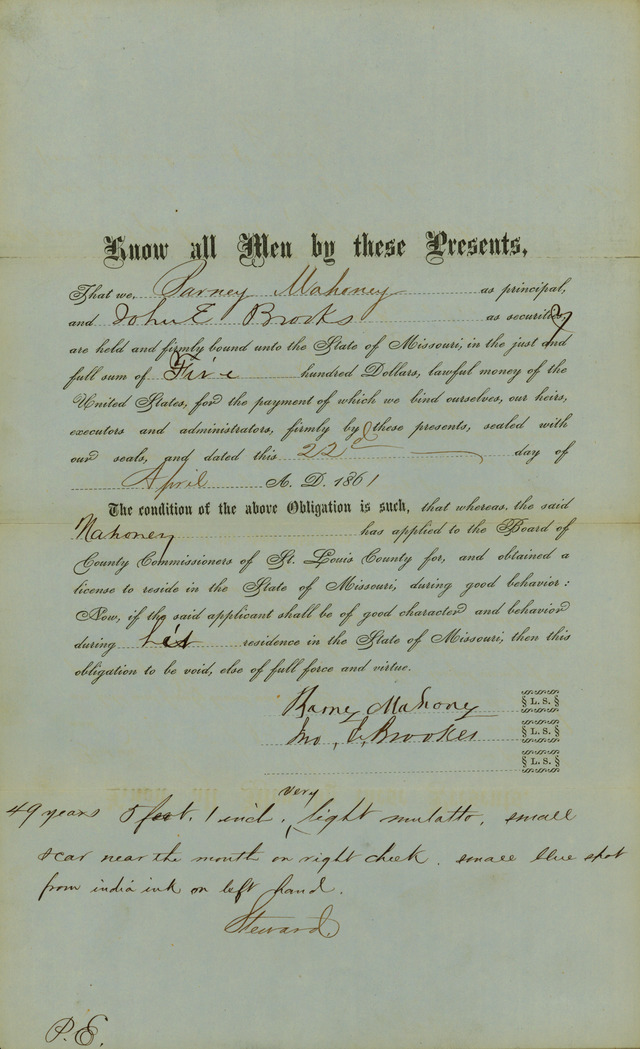 Know all Men by these Presents,
That we, Barney Mahoney as principal,
and John E Brooks as securities
are held and firmly bound unto the State of Missouri, in the just and
full sum of Five hundred Dollars, lawful money of the
United States, for the payment of which we bind ourselves, our heirs,
executors and administrators, firmly by these presents, sealed with
our seals, and dated this 22d day of
April A. D. 1861
The condition of the above Obligation is such, that whereas, the said
Mahoney has applied to the Board of
County Commissioners of St. Louis County for, and obtained a
license to reside in the State of Missouri, during good behavior:
Now, if the said applicant shall be of good character and behavior
during his residence in the State of Missouri, then this
obligation to be void, else of full force and virtue.
Barney Mahoney § L. S. §
Jno. E. Brookes § L. S. §
§ L. S. §
very
49 years 5 feet. 1 inch. light mulatto, small
scar near the mouth on right cheek. small blue spot
from india ink on left hand.
Steward
P.E.